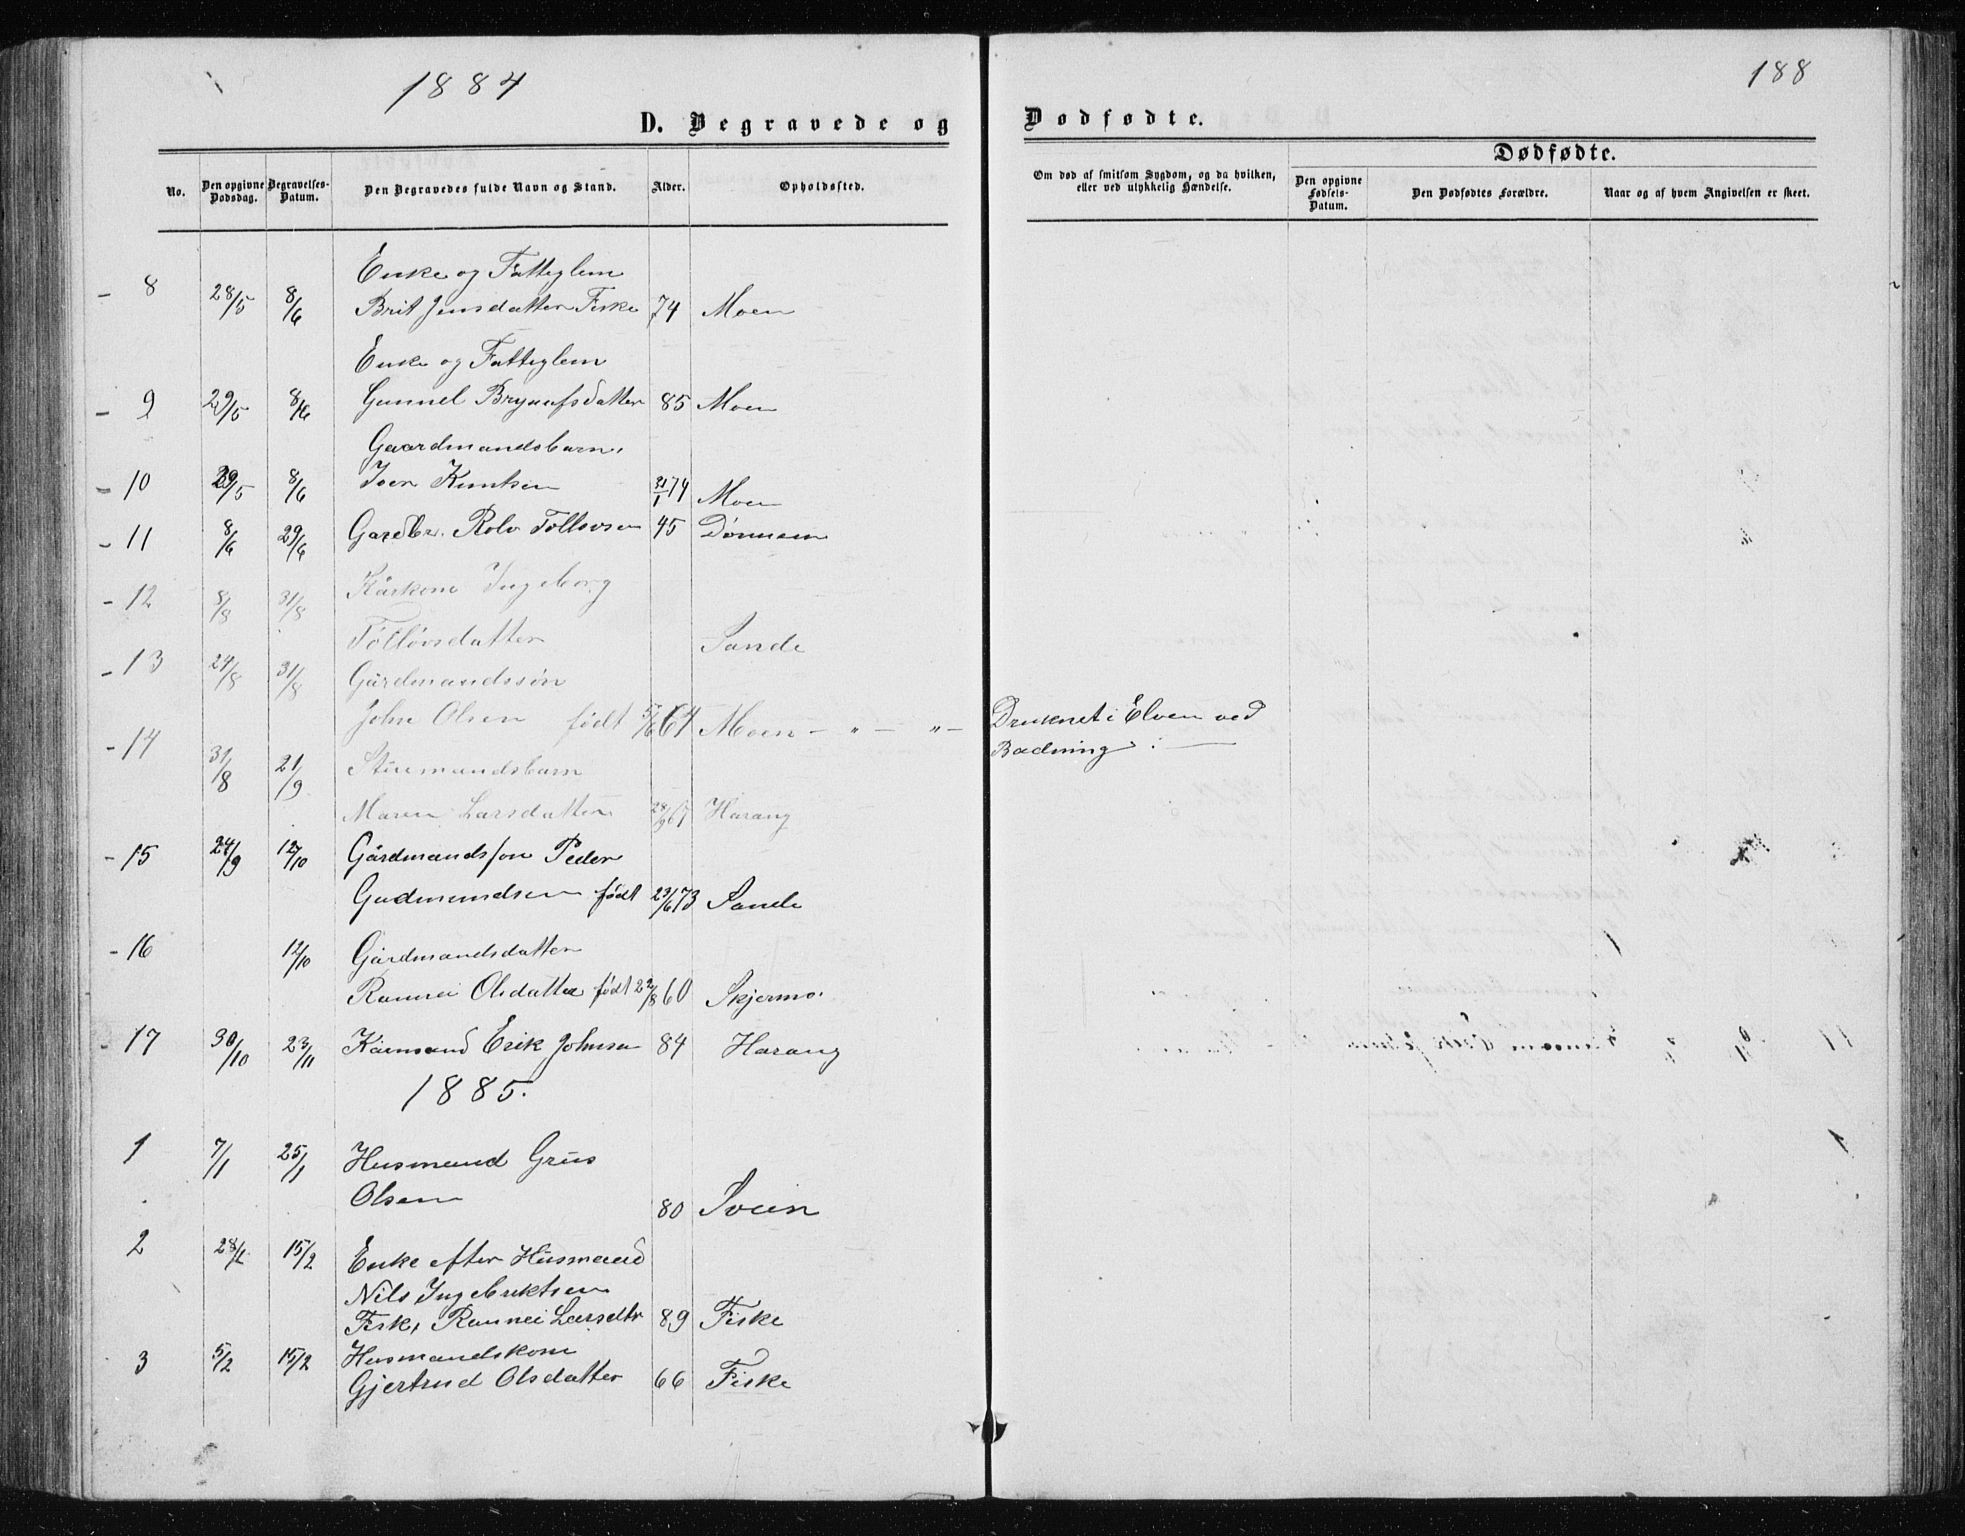 1884
188
D. Begravede og Dødfødte.
Dødfødte.
No.
Den opgivne Dødsdag.
Begravelses-Datum.
Den Begravedes fulde Navn og Stand.
Alder.
Opholdssted.
Om død af smitsom Sygdom, og da hvilken, eller ved ulykkelig Hændelse.
Den opgivne Fødsels-Datum.
Den Dødfødtes Forældre.
Naar og af hvem Angivelsen er skeet.
Enke og Fatteglem
- 8 28/5 8/6 Brit Jensdatter Fiske 74 Moen
Enke og Fatteglem
- 9 29/5 8/6 Gunnel Brynufsdatter 85 Moen
Gaardmandsbarn.
- 10 29/5 8/6 Iver Knutsen 31/1 74 Moen
- 11 8/6 29/6 Gardbr. Rolv Tollovsen 45 Dønnem
- 12 8/8 31/8 Kårkone Ingeborg
Tølløvsdatter Sande
- 13 24/8 31/8 Gårdmandssøn
John Olsen født 5/6 64 Moen - " - " - Druknet i Elven ved
Badning.
- 14 31/8 21/9 Stuemandsbarn
Maren Larsdatter 28/9 67 Harang
- 15 24/9 12/10 Gårdmandsson Peder
Gudmundsen født 23/6 73 Sande
- 16 12/10 Gårdmandsdatter
Rannei Olsdatter født 22/8 60 Skjermo.
- 17 30/10 23/11 Kårmand Erik Johnsen 84 Harang
1885.
1 7/1 25/1 Husmand Grus
Olsen 80 Svein
2 28/1 15/2 Enke efter Husmand
Nils Ingebriktsen
Fisk, Rannei Larsdtr 89 Fiske
3 5/2 15/2 Husmandskone
Gjertrud Olsdatter 66 Fiske